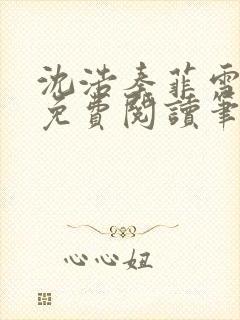 沈浩秦菲雪
免費閱讀筆
心心妞